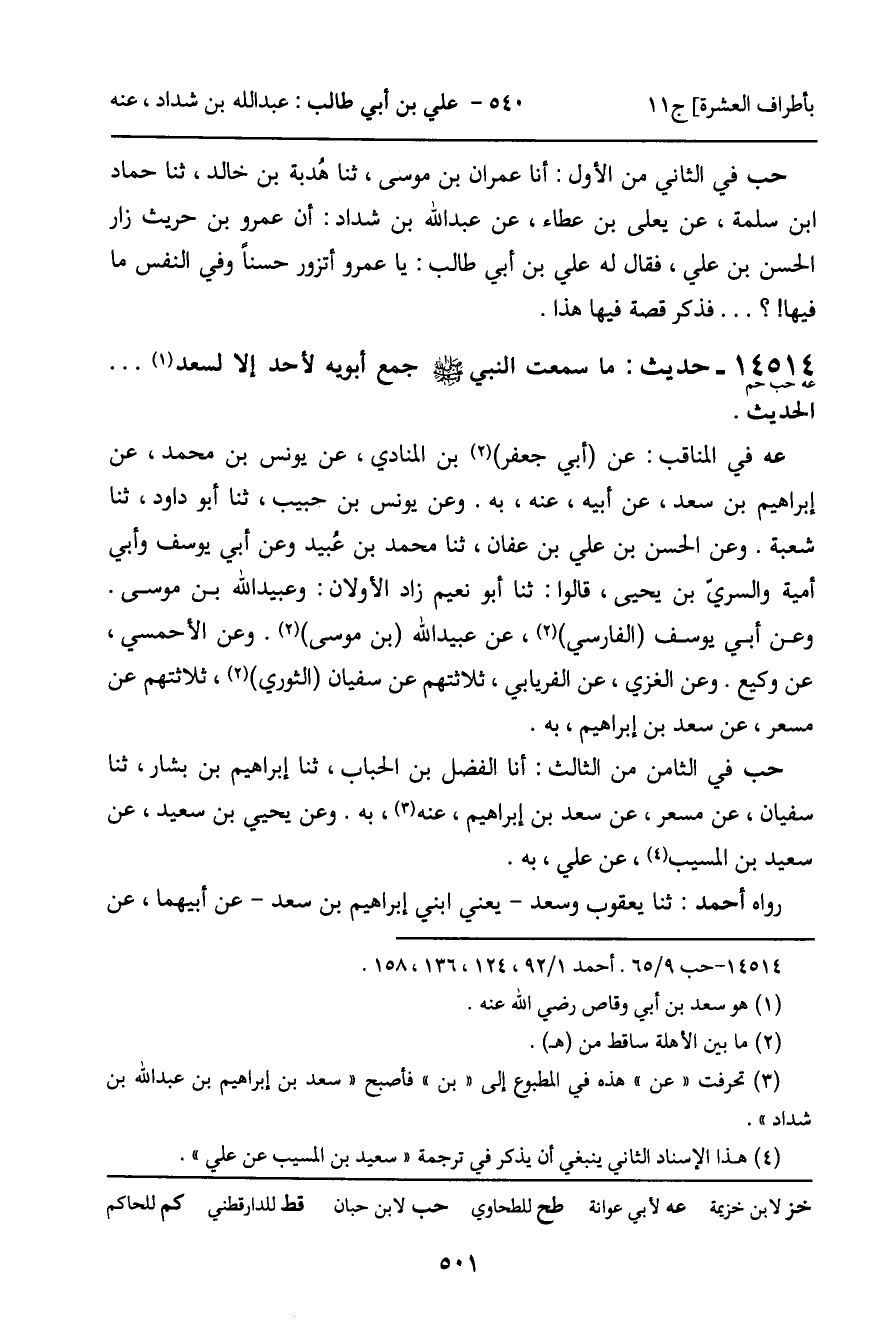 بأطراف العشرة] ج١١ ٥٤٠ - علي بن أبي طالب : عبدالله بن شداد ، عنه
حب في الثاني من الأول : أنا عمران بن موسى ، ثنا هُدبة بن خالد ، ثنا حماد
ابن سلمة ، عن يعلى بن عطاء ، عن عبدالله بن شداد : أن عمرو بن حريث زار
الحسن بن علي ، فقال له علي بن أبي طالب : يا عمرو أتزور حسناً وفي النفس ما
فيها! ؟ ... فذكر قصة فيها هذا .
١٤٥١٤ ـ حديث : ما سمعت النبي ﷺ جمع أبويه لأحد إلا لسعد(١) ...
عه حب حم
الحديث .
عه في المناقب : عن (أبي جعفر)(٢) بن المنادي ، عن يونس بن محمد ، عن
إبراهيم بن سعد ، عن أبيه ، عنه ، به . وعن يونس بن حبيب ، ثنا أبو داود ، ثنا
شعبة . وعن الحسن بن علي بن عفان ، ثنا محمد بن عُبيد وعن أبي يوسف وأبي
أمية والسريّ بن يحيى ، قالوا : ثنا أبو نعيم زاد الأولان : وعبيدالله بـن موسـى .
وعـن أبـي يوسـف (الفارسي)(٢) ، عن عبيدالله (بن موسى)(٢) . وعن الأحمسي ،
عن وكيع . وعن الغزي ، عن الفريابي ، ثلاثتهم عن سفيان (الثوري)(٢) ، ثلاثتهم عن
مسعر ، عن سعد بن إبراهيم ، به .
حب في الثامن من الثالث : أنا الفضل بن الحباب ، ثنا إبراهيم بن بشار ، ثنا
سفيان ، عن مسعر ، عن سعد بن إبراهيم ، عنه(٣) ، به . وعن يحيي بن سعيد ، عن
سعيد بن المسيب(٤) ، عن علي ، به .
رواه أحمد : ثنا يعقوب وسعد - يعني ابني إبراهيم بن سعد - عن أبيهما ، عن
١٤٥١٤-حب ٦٥/٩ . أحمد ٩٢/١ ، ١٢٤ ، ١٣٦ ، ١٥٨ .
(١) هو سعد بن أبي وقاص رضي الله عنه .
(٢) ما بين الأهلة ساقط من (هـ) .
(٣) تحرفت « عن » هذه في المطبوع إلى « بن » فأصبح « سعد بن إبراهيم بن عبدالله بن
شداد » .
(٤) هـذا الإسناد الثاني ينبغي أن يذكر في ترجمة « سعيد بن المسيب عن علي » .
خز لابن خزيمة عه لأبي عوانة طح للطحاوي حب لابن حبان قط للدارقطني كم للحاكم
٥٠١